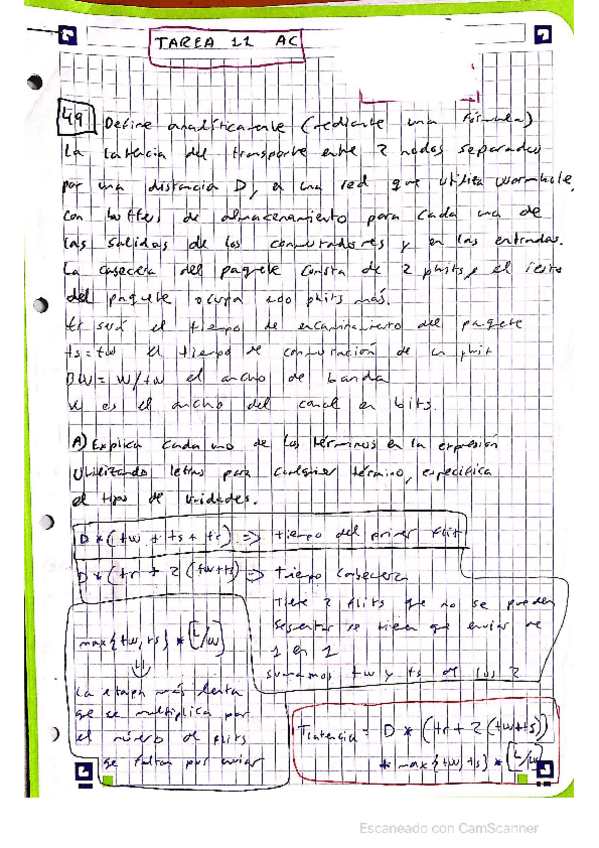 TAREA 11 AC
49 Define analíticamente (mediante una fórmula)
La latencia del transporte entre 2 nodos separados
por una distancia D, en una red que utiliza wormhole,
con buffers de almacenamiento para cada una de
las salidas de los conmutadores y en las entradas.
La cabecera del paquete consta de 2 phits, el resto
del paquete ocupa 200 phits más.
tr será el tiempo de encaminamiento del paquete
ts = tw el tiempo de conmutación de un phit
BW = W/tw el ancho de banda
w es el ancho del canal en bits.
A) Explica cada uno de los términos en la expresión
utilizando letras para cualquier término, especifica
el tipo de unidades.
D * (tw + ts + tr) => tiempo del primer flit
D * (tr + 2 (tw+ts) => Tiempo cabecera
Tiene 2 flits que no se pueden
segmentar se tienen que enviar de
1 en 1
sumamos tw y ts de los 2
max{tw,ts} * [L/w]
La etapa más lenta
que se multiplica por
el número de flits
que faltan por enviar
Tlatencia = D * (tr + 2 (tw+ts))
* max{tw,ts} * [L/w]
Escaneado con CamScanner